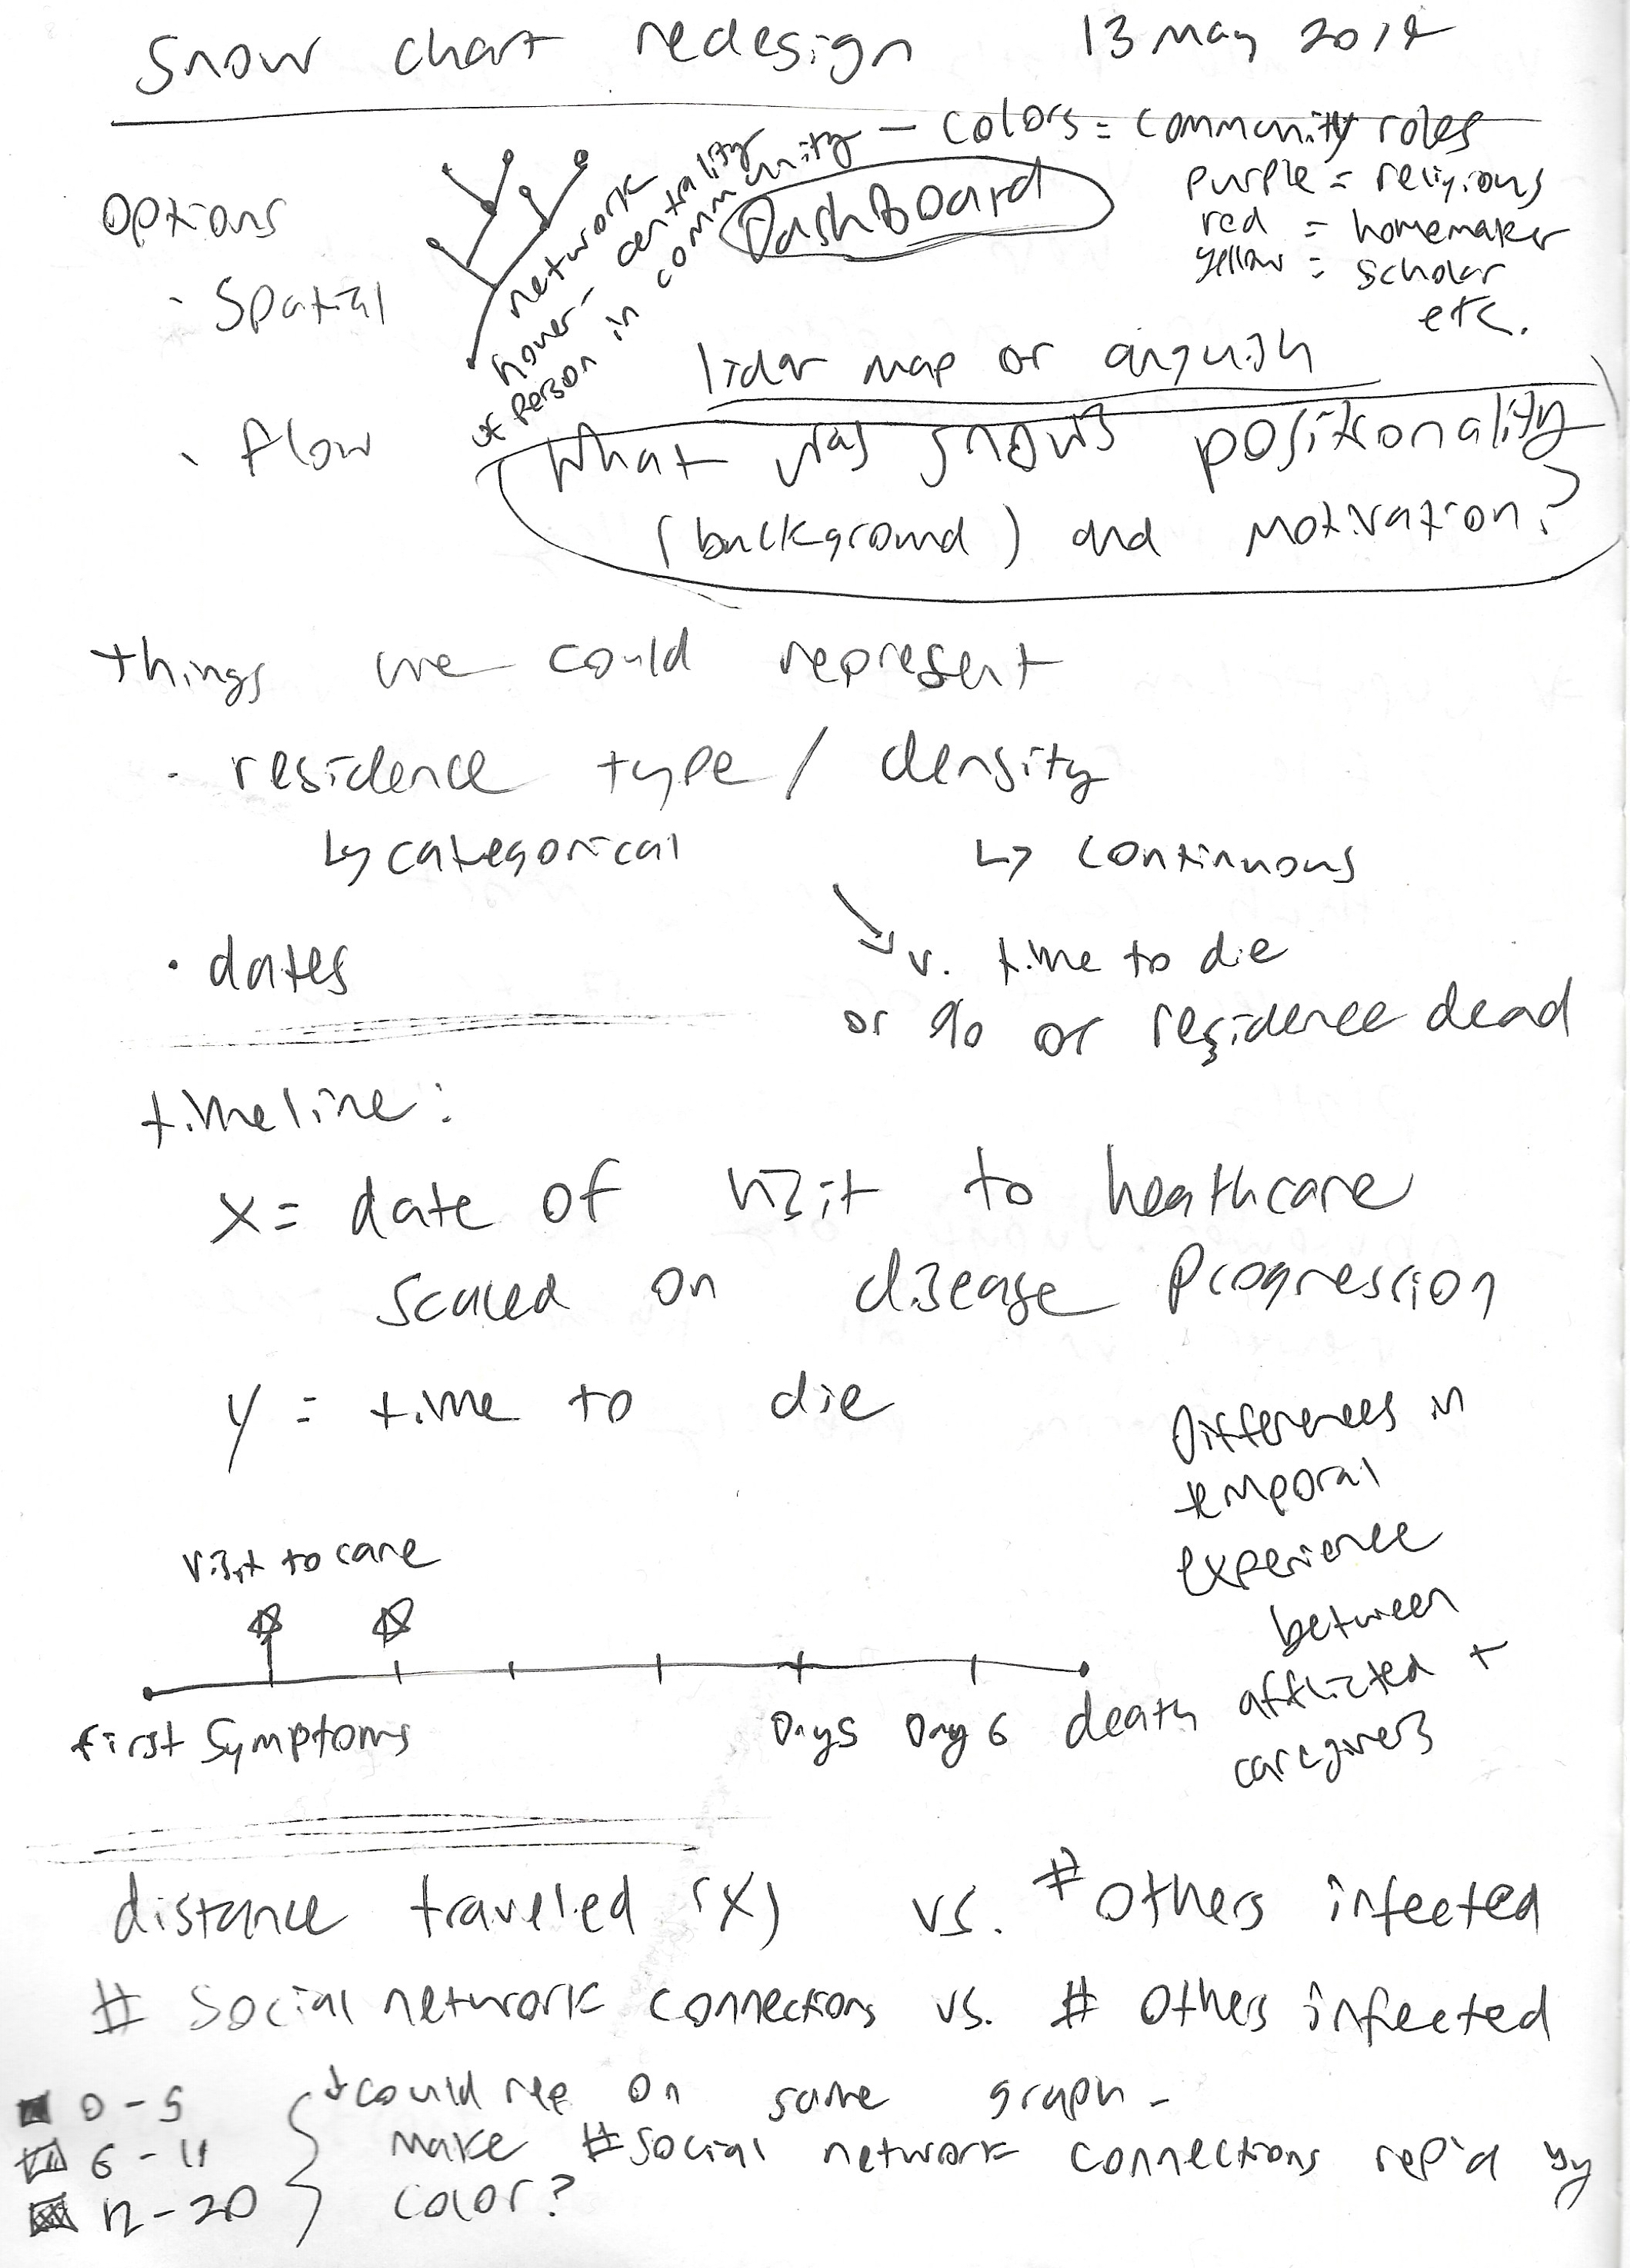 Snow chart redesign 13 May 2014
network
hover - centrality
of person in community - colors = community roles
purple = religious
red = homemaker
yellow = scholar
etc.
DashBoard
Options
· Spatial
· flow
lidar map or anguish
What was Snow's positionality
(background) and motivation?
things we could represent
· residence type / density
↳ categorical ↳ continuous
v. time to die
or % or residence dead
· dates
timeline:
X = date of visit to heathcare
scaled on disease Progression
y = time to die
Differences in
temporal
experience
between
afflicted +
caregivers
visit to care
first Symptoms Day 5 Day 6 death
distance traveled (X) vs. # others infected
# social network connections vs. # others infected
+ could rep on same graph -
make # social network connections rep'd by
color?
0 - 5
6 - 11
12 - 20